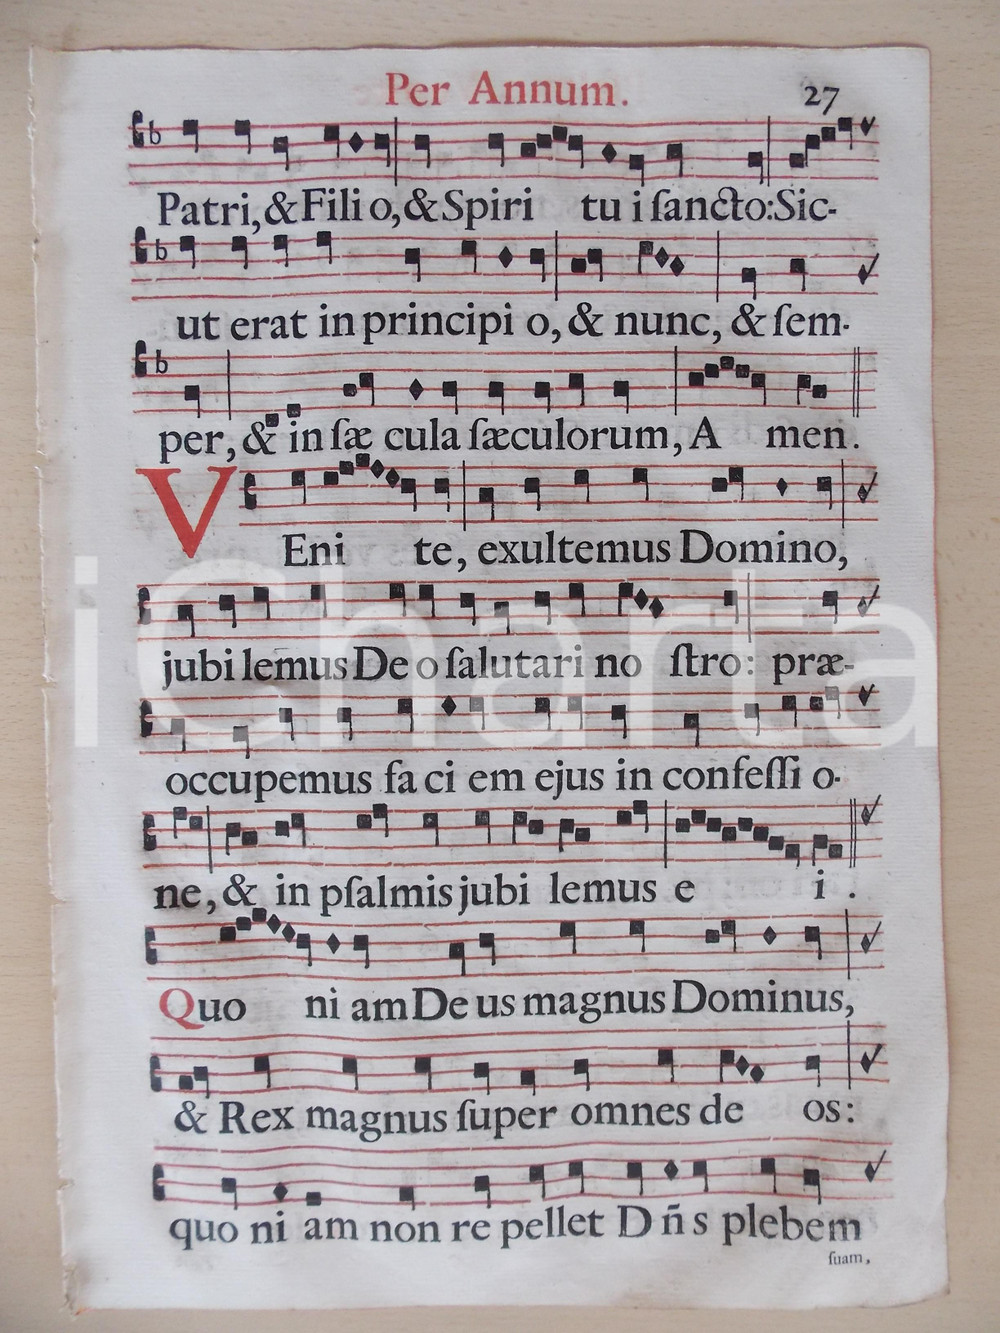 Per Annum. 27
Patri, & Fili o, & Spiri tu i ſancto: Sic-
ut erat in principi o, & nunc, & ſem-
per, & in ſæ cula ſæculorum, A men.
VEni te, exultemus Domino,
jubi lemus De o ſalutari no ſtro: præ-
occupemus fa ci em ejus in confeſſi o-
ne, & in pſalmis jubi lemus e i.
Quo ni am De us magnus Dominus,
& Rex magnus ſuper omnes de os:
quo ni am non re pellet D ñ s plebem
ſuam,
iCharta